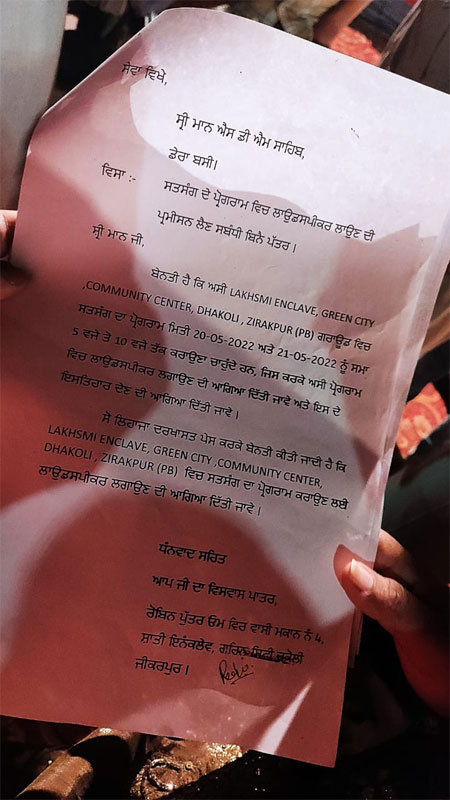 ਸੇਵਾ ਵਿਖੇ,
ਸ੍ਰੀ ਮਾਨ ਐਸ ਡੀ ਐਮ ਸਾਹਿਬ,
ਡੇਰਾ ਬਸੀ।
ਵਿਸਾ :- ਸਤਸੰਗ ਦੇ ਪ੍ਰੋਗਰਾਮ ਵਿਚ ਲਾਉਡਸਪੀਕਰ ਲਾਉਣ ਦੀ
ਪ੍ਰਮੀਸਨ ਲੈਣ ਸਬੰਧੀ ਬਿਨੈ ਪੱਤਰ।
ਸ੍ਰੀ ਮਾਨ ਜੀ,
ਬੇਨਤੀ ਹੈ ਕਿ ਅਸੀ LAKHSMI ENCLAVE, GREEN CITY
,COMMUNITY CENTER, DHAKOLI , ZIRAKPUR (PB) ਗਰਾਊਂਡ ਵਿਚ
ਸਤਸੰਗ ਦਾ ਪ੍ਰੋਗਰਾਮ ਮਿਤੀ 20-05-2022 ਅਤੇ 21-05-2022 ਨੂੰ ਸਮਾ
5 ਵਜੇ ਤੋ 10 ਵਜੇ ਤੱਕ ਕਰਾਉਣਾ ਚਾਹੁੰਦੇ ਹਨ, ਜਿਸ ਕਰਕੇ ਅਸੀ ਪ੍ਰੋਗਰਾਮ
ਵਿਚ ਲਾਉਡਸਪੀਕਰ ਲਗਾਉਣ ਦੀ ਆਗਿਆ ਦਿੱਤੀ ਜਾਵੇ ਅਤੇ ਇਸ ਦੇ
ਇਸਤਿਹਾਰ ਦੇਣ ਦੀ ਆਗਿਆ ਦਿੱਤੀ ਜਾਵੇ।
ਸੋ ਲਿਰਾਜਾ ਦਰਖਾਸਤ ਪੇਸ ਕਰਕੇ ਬੇਨਤੀ ਕੀਤੀ ਜਾਦੀ ਹੈ ਕਿ
LAKHSMI ENCLAVE, GREEN CITY ,COMMUNITY CENTER,
DHAKOLI , ZIRAKPUR (PB) ਵਿਚ ਸਤਸੰਗ ਦਾ ਪ੍ਰੋਗਰਾਮ ਕਰਾਉਣ ਲਈ
ਲਾਉਡਸਪੀਕਰ ਲਗਾਉਣ ਦੀ ਆਗਿਆ ਦਿੱਤੀ ਜਾਵੇ।
ਧੰਨਵਾਦ ਸਹਿਤ
ਆਪ ਜੀ ਦਾ ਵਿਸਵਾਸ ਪਾਤਰ,
ਰੋਬਿਨ ਪੁੱਤਰ ਓਮ ਵਿਰ ਵਾਸੀ ਮਕਾਨ ਨੰ 4,
ਸਾਤੀ ਇਨਕਲੇਵ, ਗਰਿਨ ਸਿਟੀ
ਜੀਕਰਪੁਰ।